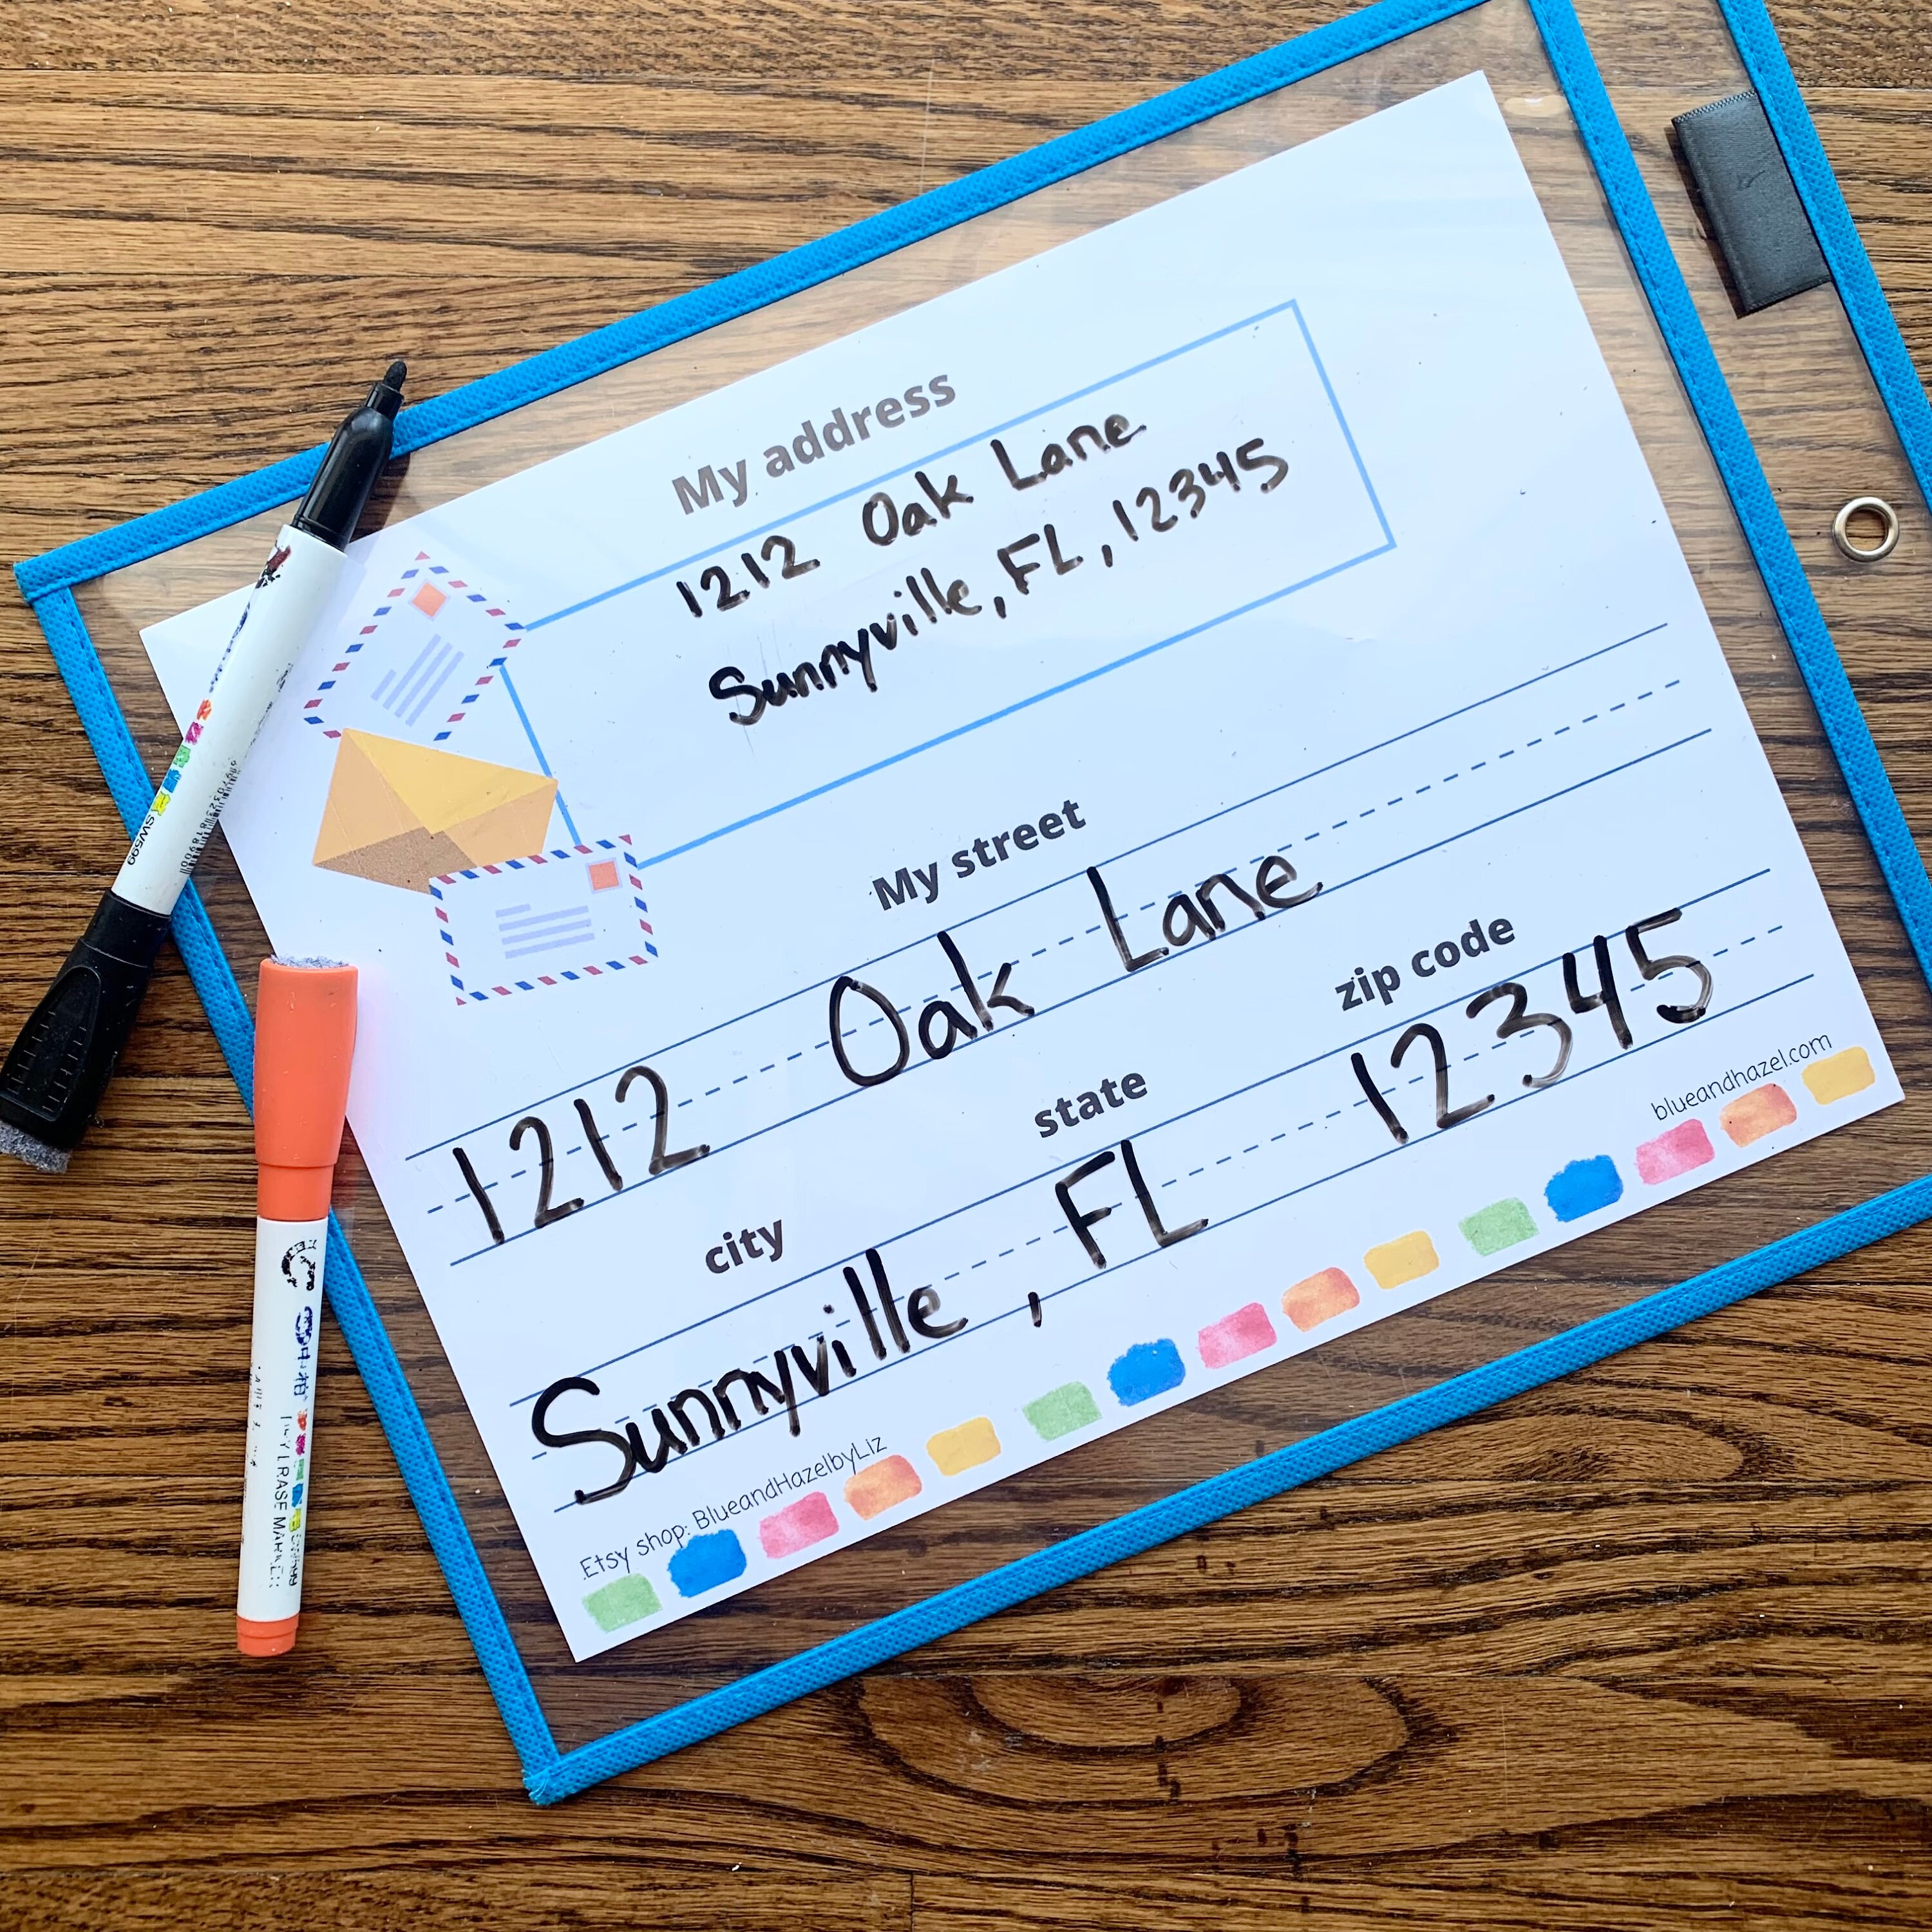 My address
1212 Oak Lane
Sunnyville, FL, 12345
My street
1212 Oak Lane
city state zip code
Sunnyville, FL 12345
Etsy shop: BlueandHazelbyLiz blueandhazel.com
SW599
DRY ERASE MARKER